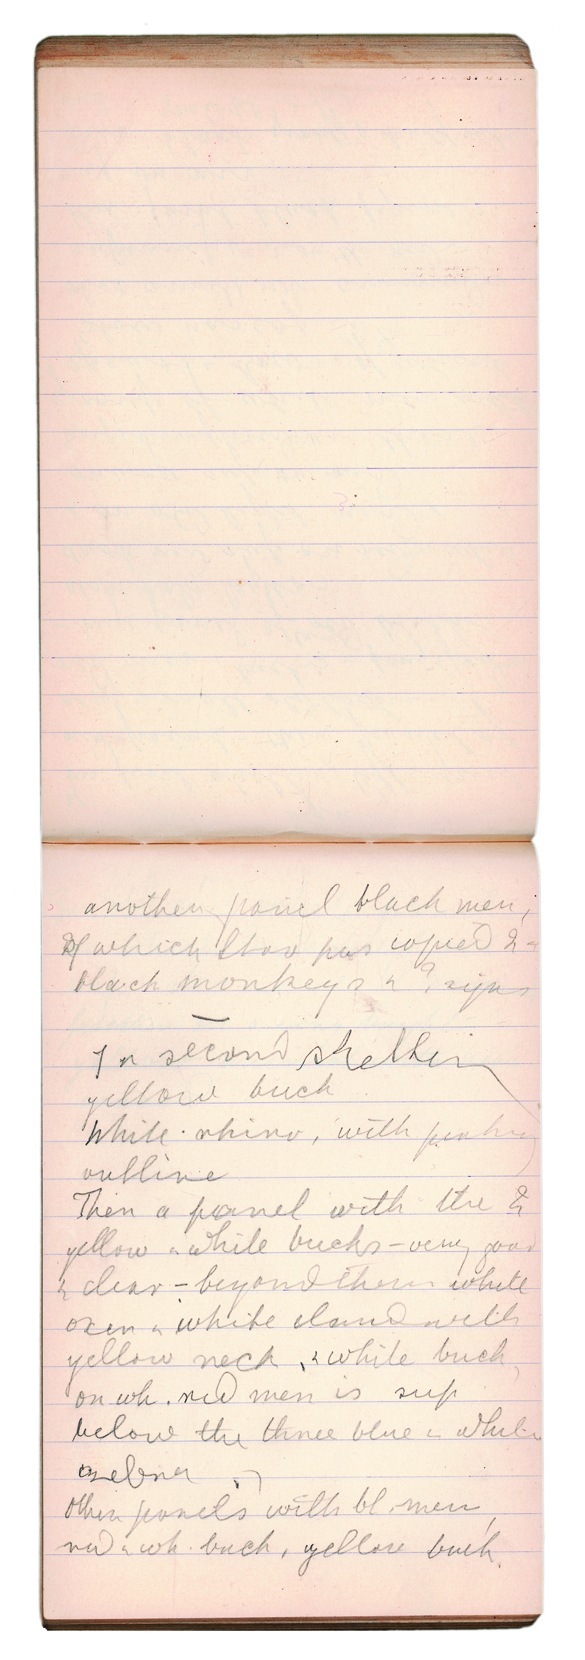 another panel black men,
of which Stow has copied 2 &
black monkeys & ? signs
In second shelter
yellow buck
White rhino, with pinky
outline
Then a panel with the 2
yellow & white bucks – very good
& clear – beyond them white
oxen & white eland with
yellow neck, & white buck,
on wh. red men is sup
below the three blue & white
zebra
other panels with bl. men,
red & wh. buck, yellow buck.